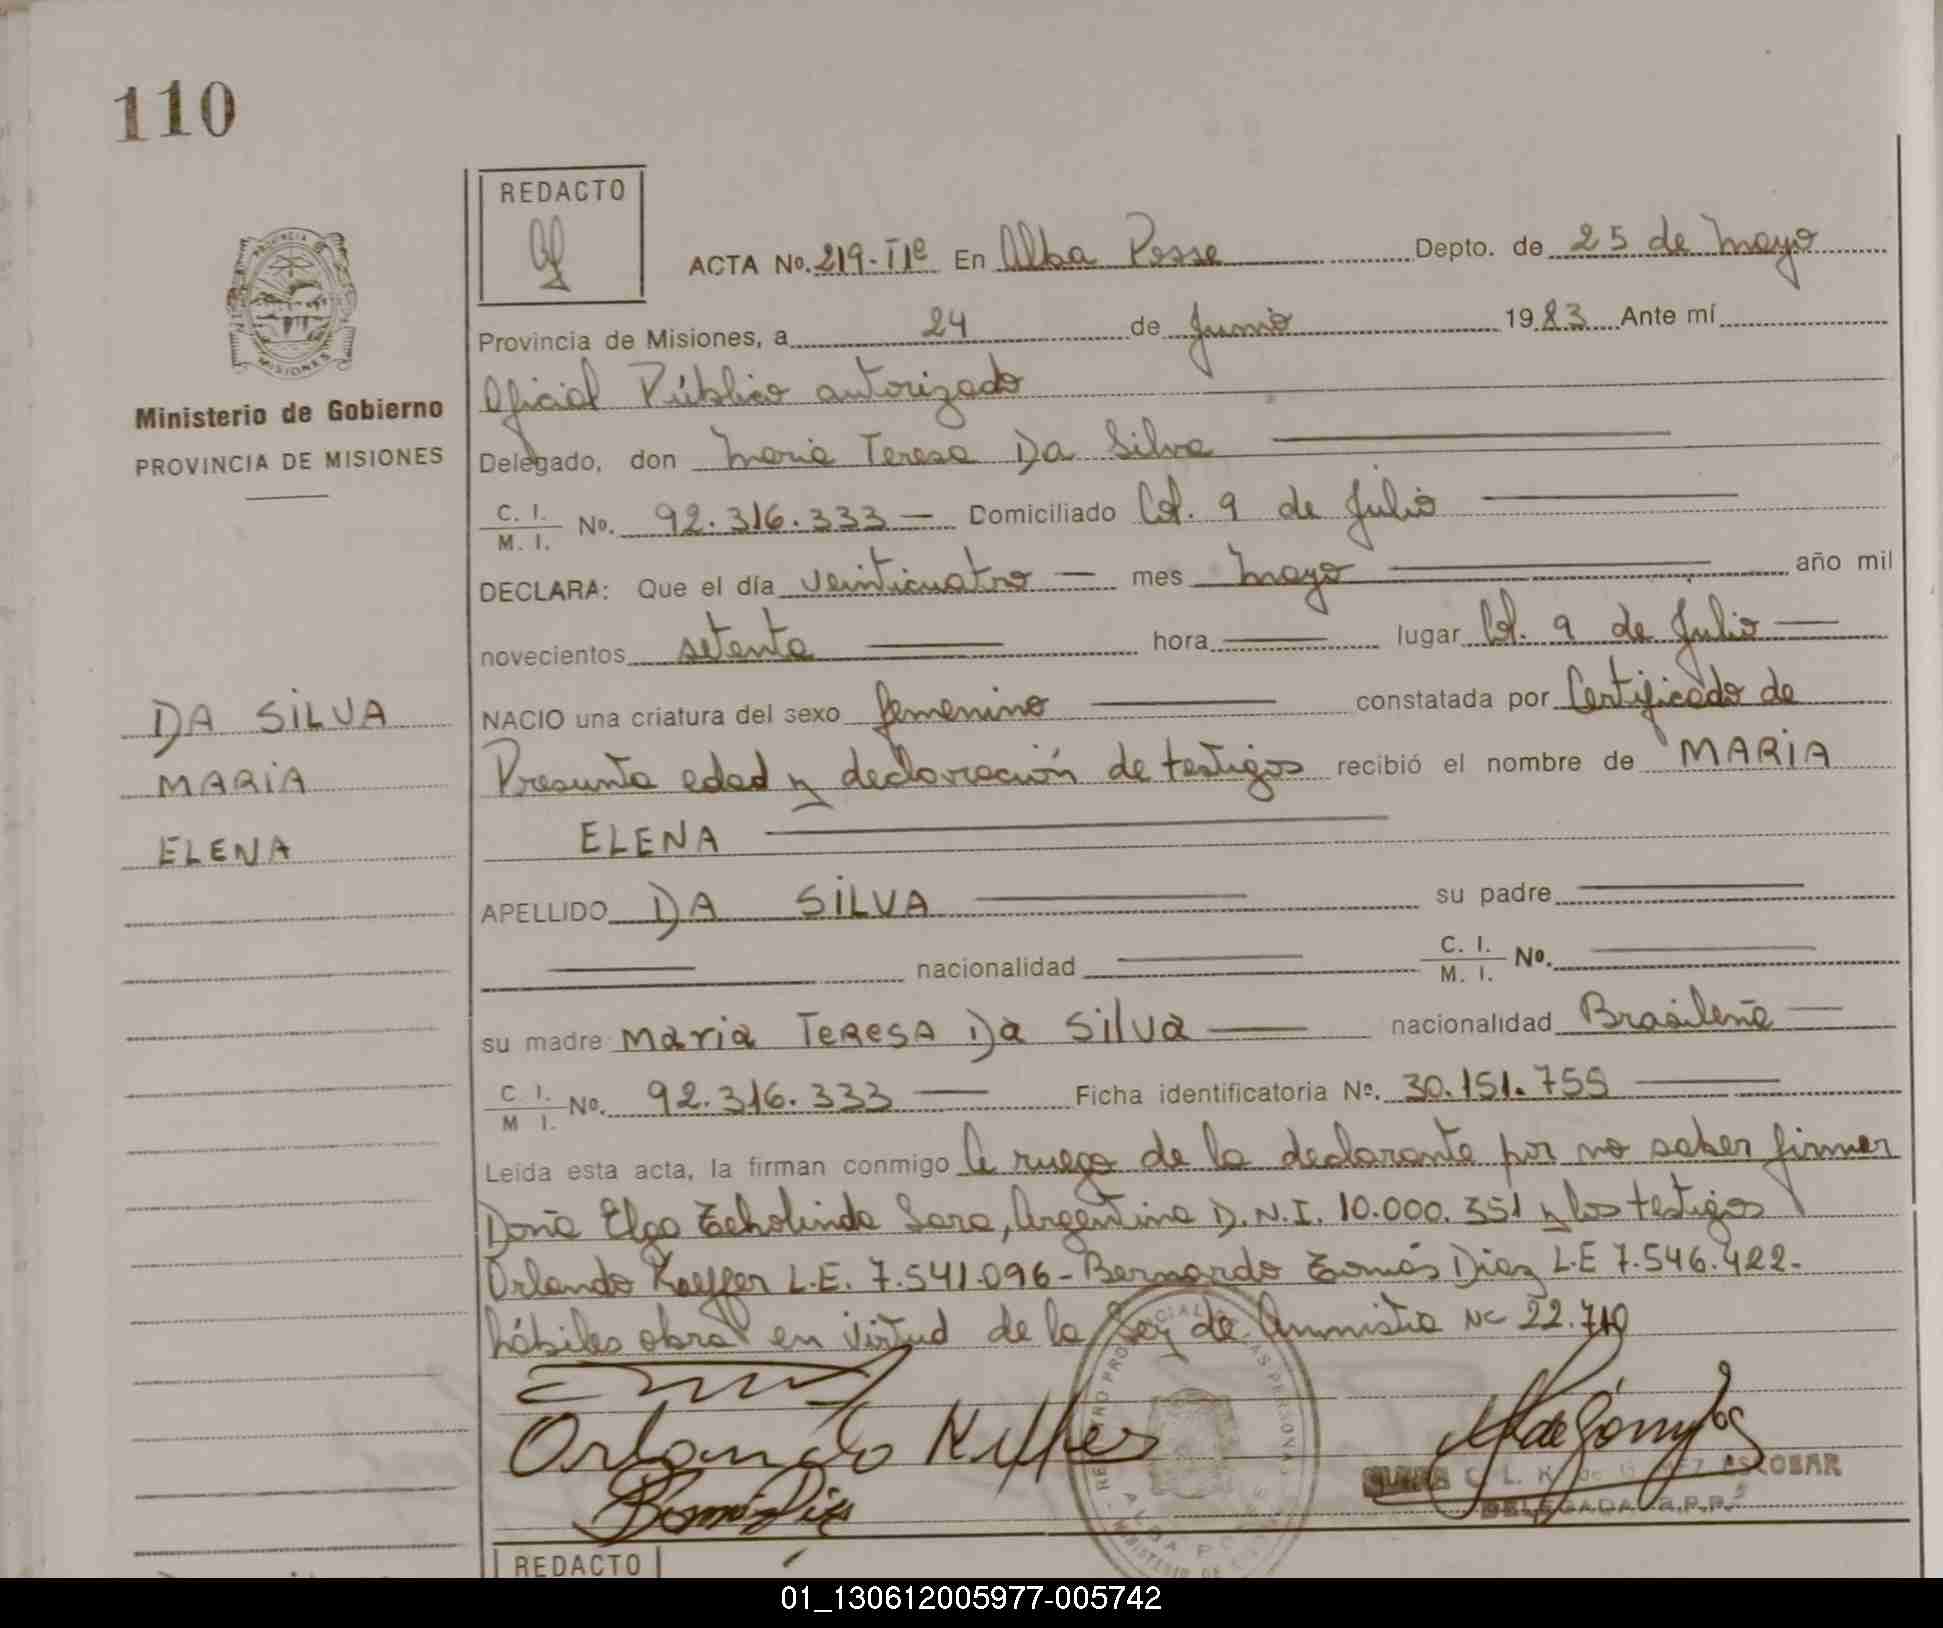 110
REDACTO
ACTA No. 219-IIe En Alba Posse Depto. de 25 de Mayo
Provincia de Misiones, a 24 de Junio 1983 Ante mí
Oficial Público autorizado
Ministerio de Gobierno
PROVINCIA DE MISIONES
Delegado, don Maria Teresa Da Silva
C. I.
M. I. No. 92.316.333 — Domiciliado Col. 9 de Julio
DECLARA: Que el día veinticuatro — mes Mayo año mil
novecientos setenta hora lugar Col. 9 de Julio —
NACIO una criatura del sexo femenino constatada por Certificado de
Presunta edad y declaración de testigos recibió el nombre de MARIA
ELENA
DA SILVA
MARIA
ELENA
APELLIDO DA SILVA su padre
nacionalidad C. I.
M. I. No.
su madre Maria TERESA Da Silva nacionalidad Brasileña —
C I.
M I. No. 92.316.333 — Ficha identificatoria No. 30.151.755
Leída esta acta, la firman conmigo A ruego de la declarante por no saber firmar
Doña Elga Sara, Argentina D.N.I. 10.000.351 y los testigos
Orlando L.E. 7.541.096 - Bernardo Tomás Diaz L.E 7.546.422.
hábiles obra en virtud de la Ley de Amnistia No 22.710
Orlando
ESCOBAR
DELEGADA R.P.P.
REDACTO
01_130612005977-005742